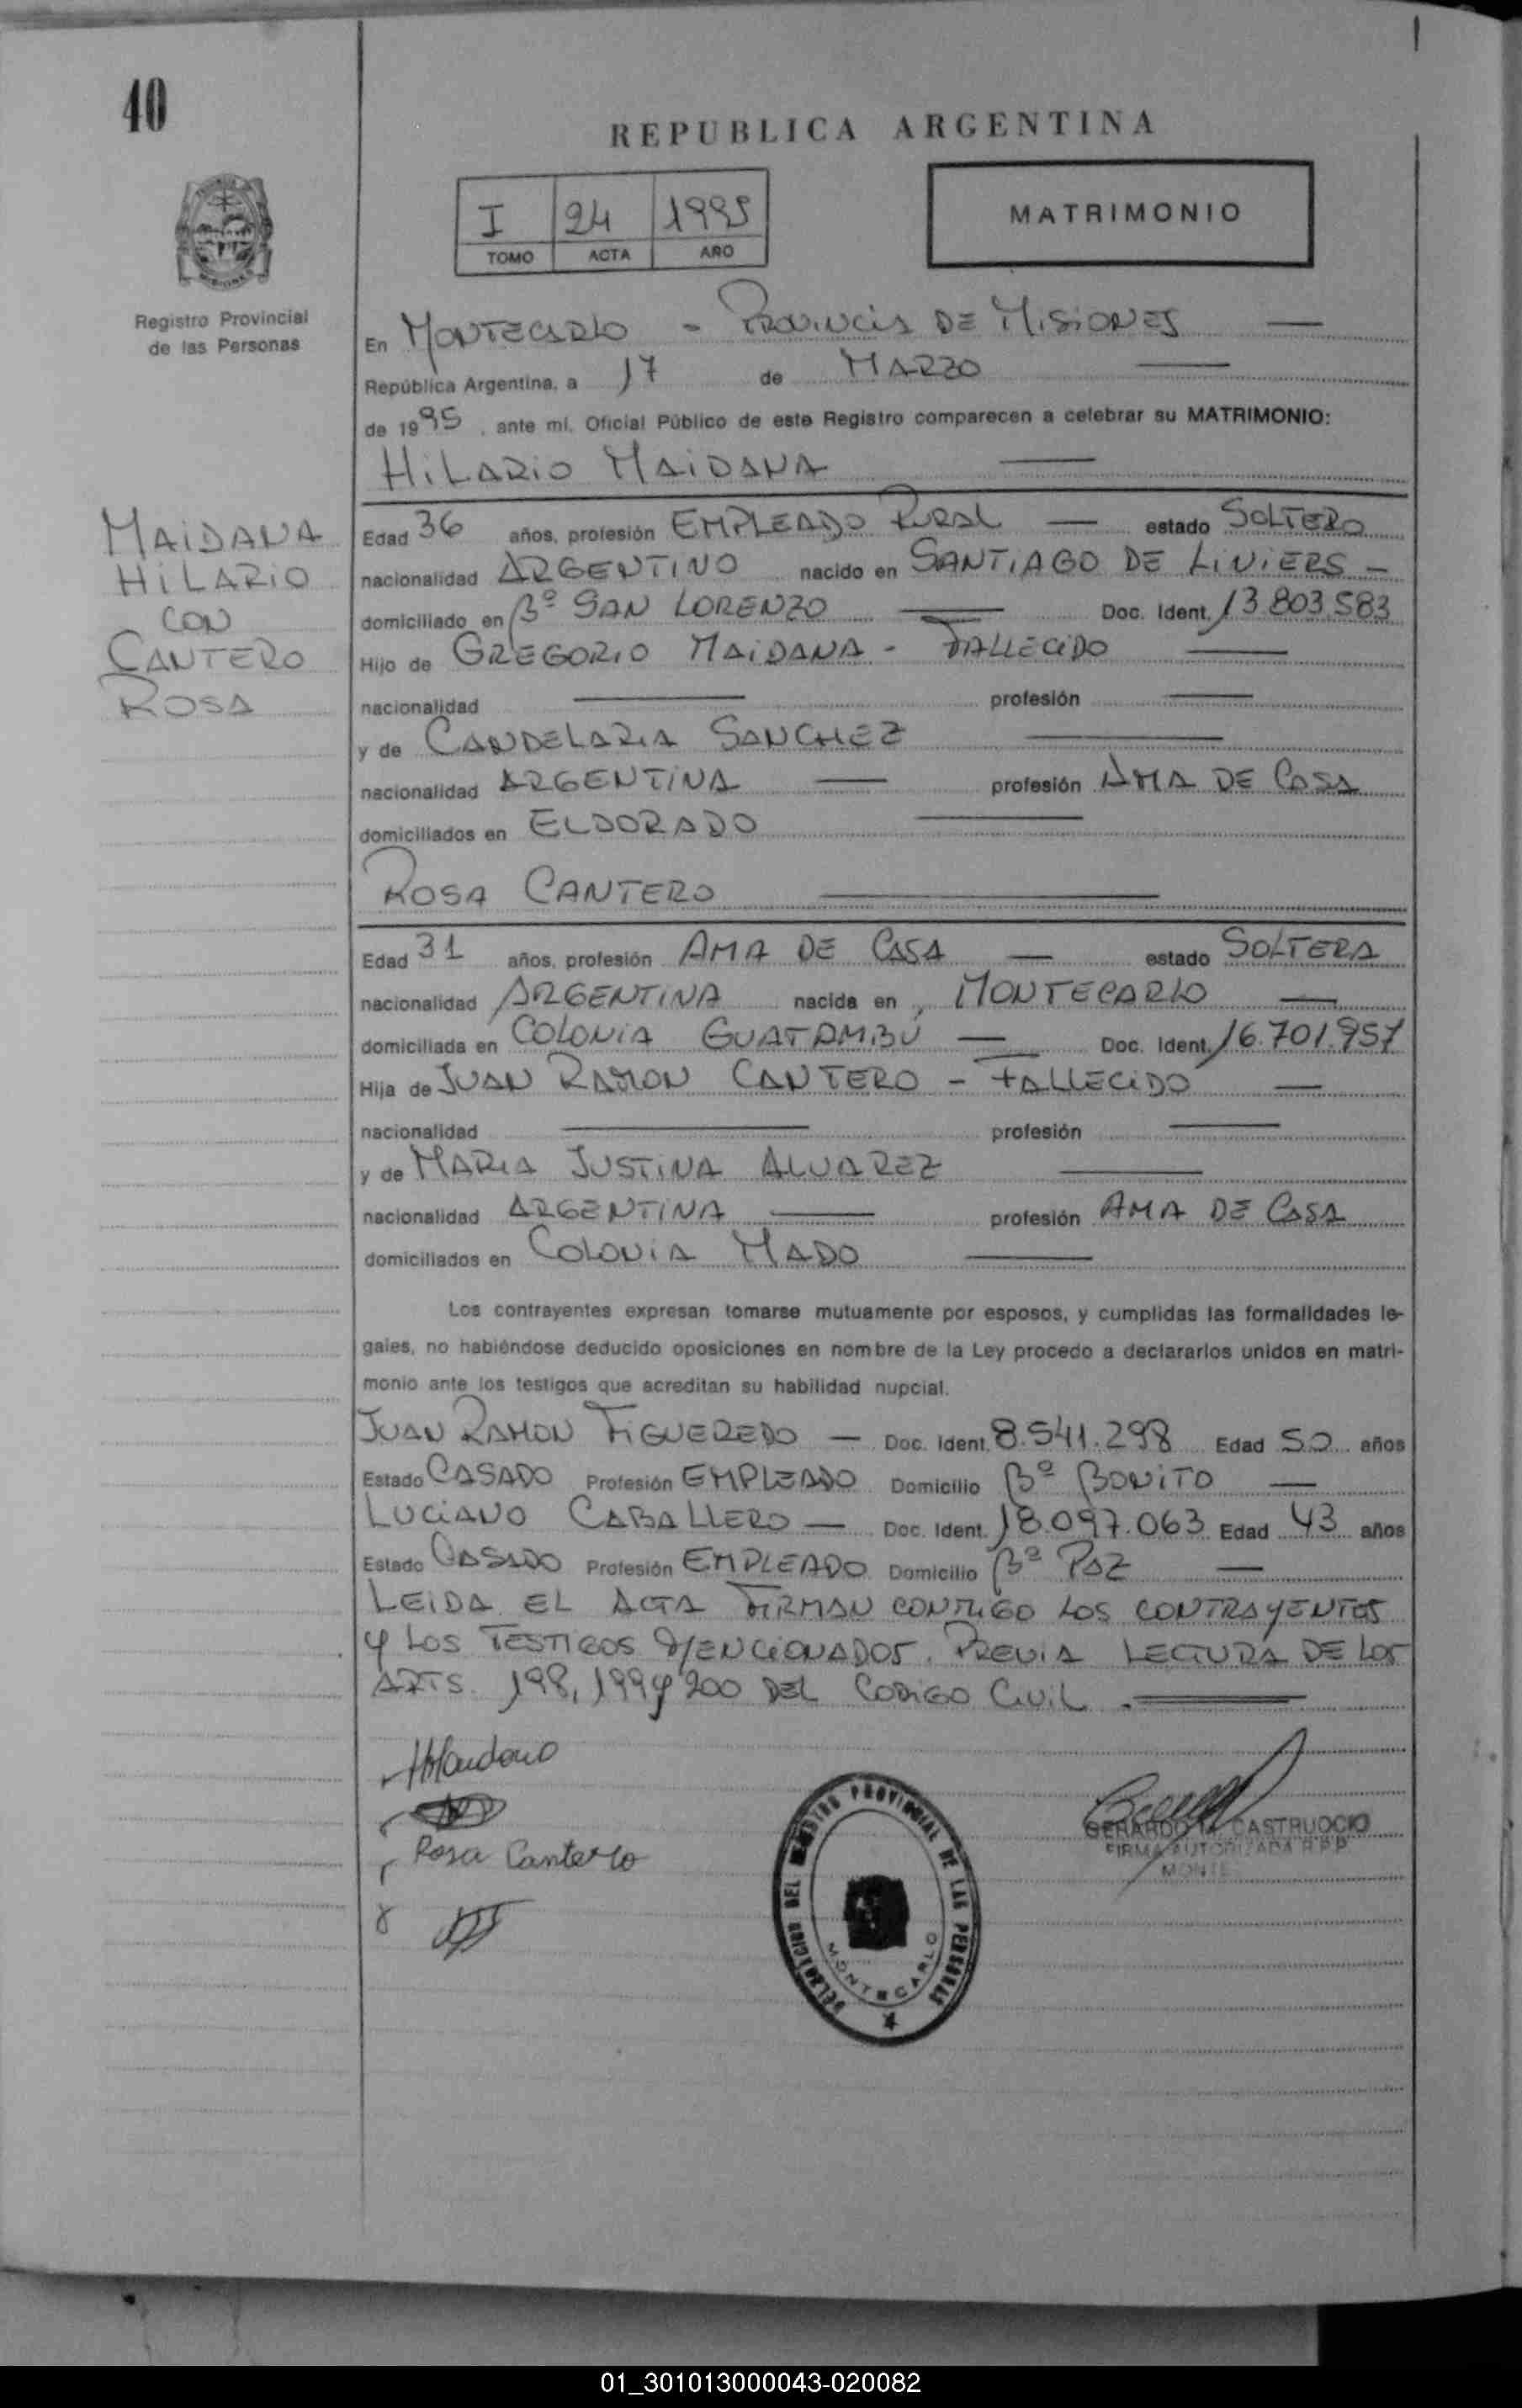 40
REPUBLICA ARGENTINA
I 24 1995
TOMO ACTA AÑO
MATRIMONIO
Registro Provincial
de las Personas
En MONTECARLO - PROVINCIA DE MISIONES
República Argentina, a 17 de MARZO
de 1995, ante mí, Oficial Público de este Registro comparecen a celebrar su MATRIMONIO:
HILARIO MAIDANA
MAIDANA
HILARIO
CON
CANTERO
ROSA
Edad 36 años, profesión EMPLEADO RURAL estado SOLTERO
nacionalidad ARGENTINO nacido en SANTIAGO DE LINIERS -
domiciliado en Bº SAN LORENZO Doc. Ident. 13.803.583
Hijo de GREGORIO MAIDANA - FALLECIDO
nacionalidad profesión
y de CANDELARIA SANCHEZ
nacionalidad ARGENTINA profesión AMA DE CASA
domiciliados en ELDORADO
ROSA CANTERO
Edad 31 años, profesión AMA DE CASA estado SOLTERA
nacionalidad ARGENTINA nacida en MONTECARLO
domiciliada en COLONIA GUATAMBÚ Doc. Ident. 16.701.957
Hija de JUAN RAMON CANTERO - FALLECIDO
nacionalidad profesión
y de MARIA JUSTINA ALVAREZ
nacionalidad ARGENTINA profesión AMA DE CASA
domiciliados en COLONIA MADO
Los contrayentes expresan tomarse mutuamente por esposos, y cumplidas las formalidades le-
gales, no habiéndose deducido oposiciones en nombre de la Ley procedo a declararlos unidos en matri-
monio ante los testigos que acreditan su habilidad nupcial.
JUAN RAMON FIGUEREDO - Doc. Ident. 8.541.298 Edad 50 años
Estado CASADO Profesión EMPLEADO Domicilio Bº BONITO
LUCIANO CABALLERO - Doc. Ident. 18.097.063 Edad 43 años
Estado CASADO Profesión EMPLEADO Domicilio Bº PAZ
LEIDA EL ACTA FIRMAN CONMIGO LOS CONTRAYENTES
Y LOS TESTIGOS MENCIONADOS. PREVIA LECTURA DE LOS
ARTS. 198, 199 y 200 DEL CODIGO CIVIL.
Rosa Cantero
DELEGACION DEL REGISTRO PROVINCIAL DE LAS PERSONAS
MONTECARLO
GERARDO M. CASTRUOCIO
FIRMA AUTORIZADA R.P.P.
01_301013000043-020082